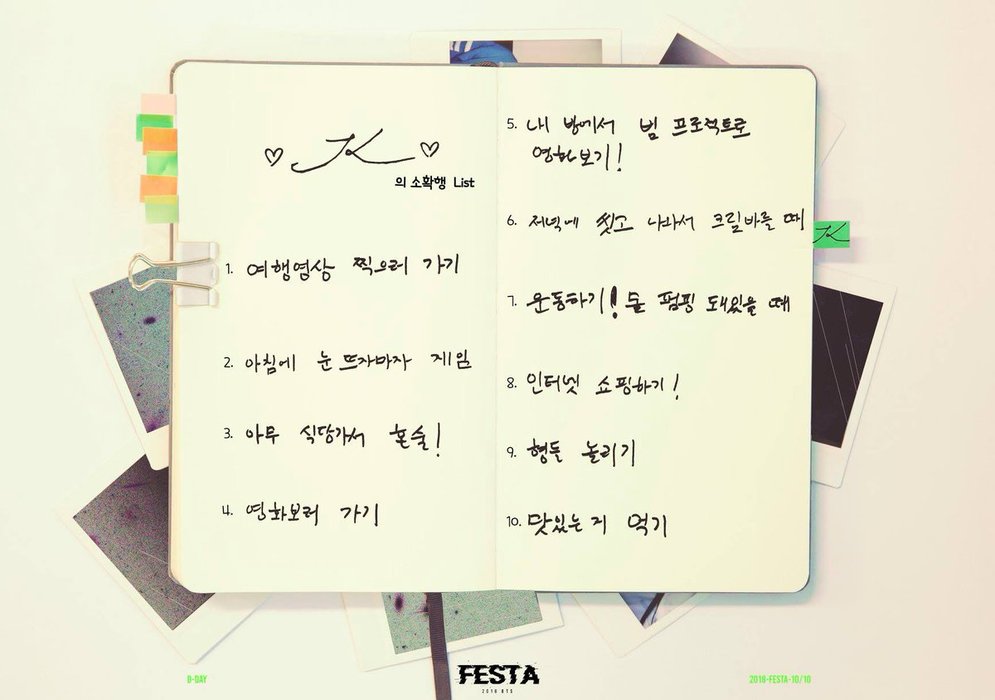 ♡ JK ♡
의 소확행 List
1. 여행영상 찍으러 가기
2. 아침에 눈 뜨자마자 게임
3. 아무 식당가서 혼술!
4. 영화보러 가기
5. 내 방에서 빔 프로젝트로
영화보기!
6. 저녁에 씻고 나와서 크림바를 때
7. 운동하기! 몸 펌핑 돼있을 때
8. 인터넷 쇼핑하기!
9. 형들 놀리기
10. 맛있는 거 먹기
JK
D-DAY
FESTA
2018 BTS
2018-FESTA-10/10